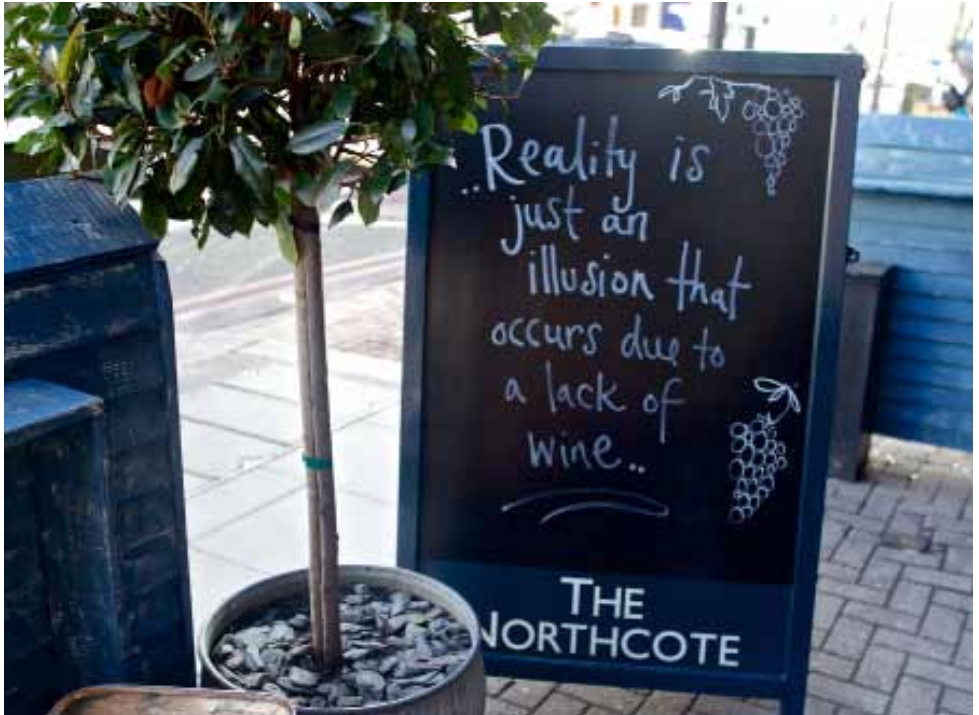 ..Reality is
just an
illusion that
occurs due to
a lack of
wine..
THE
NORTHCOTE